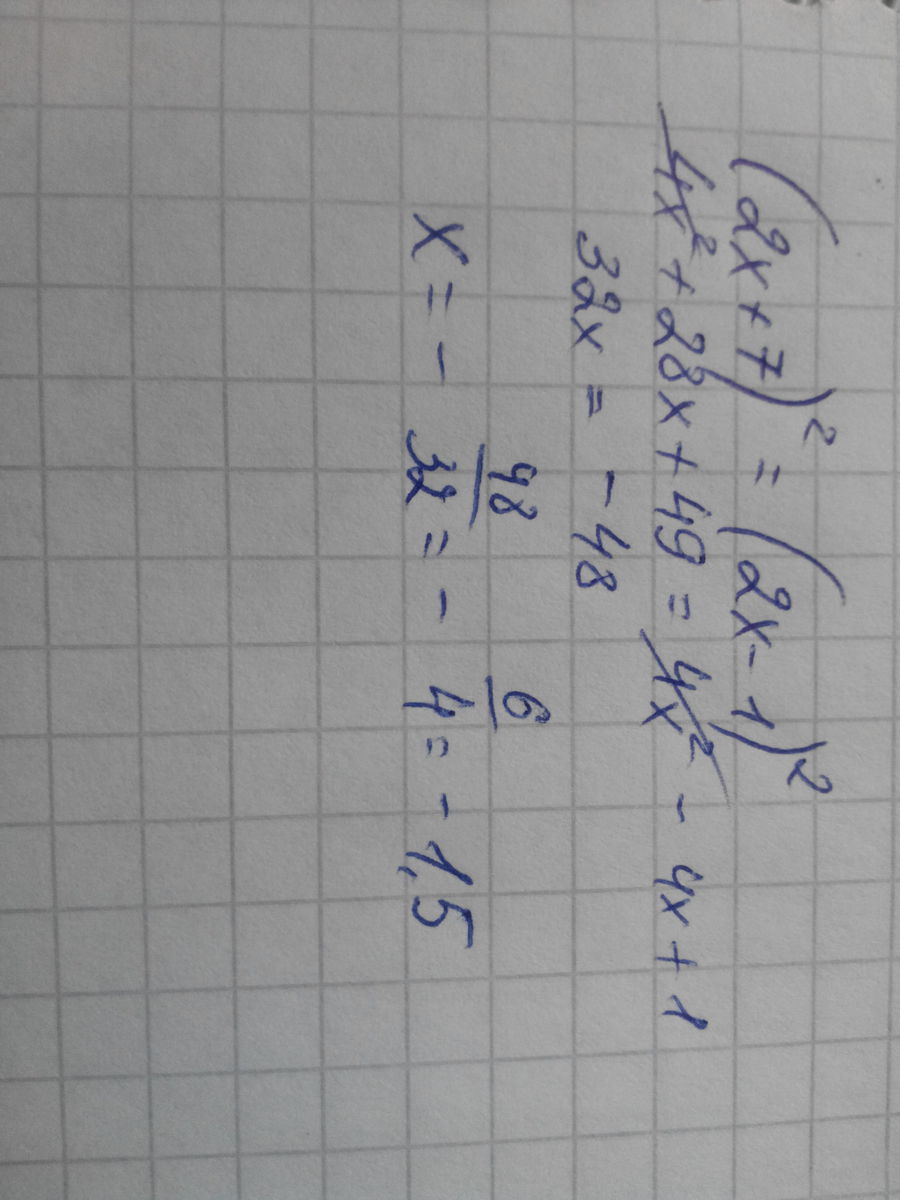 (2x+7)² = (2x-1)²
4x² + 28x + 49 = 4x² - 4x + 1
32x = -48
x = - 48/32 = - 6/4 = -1,5